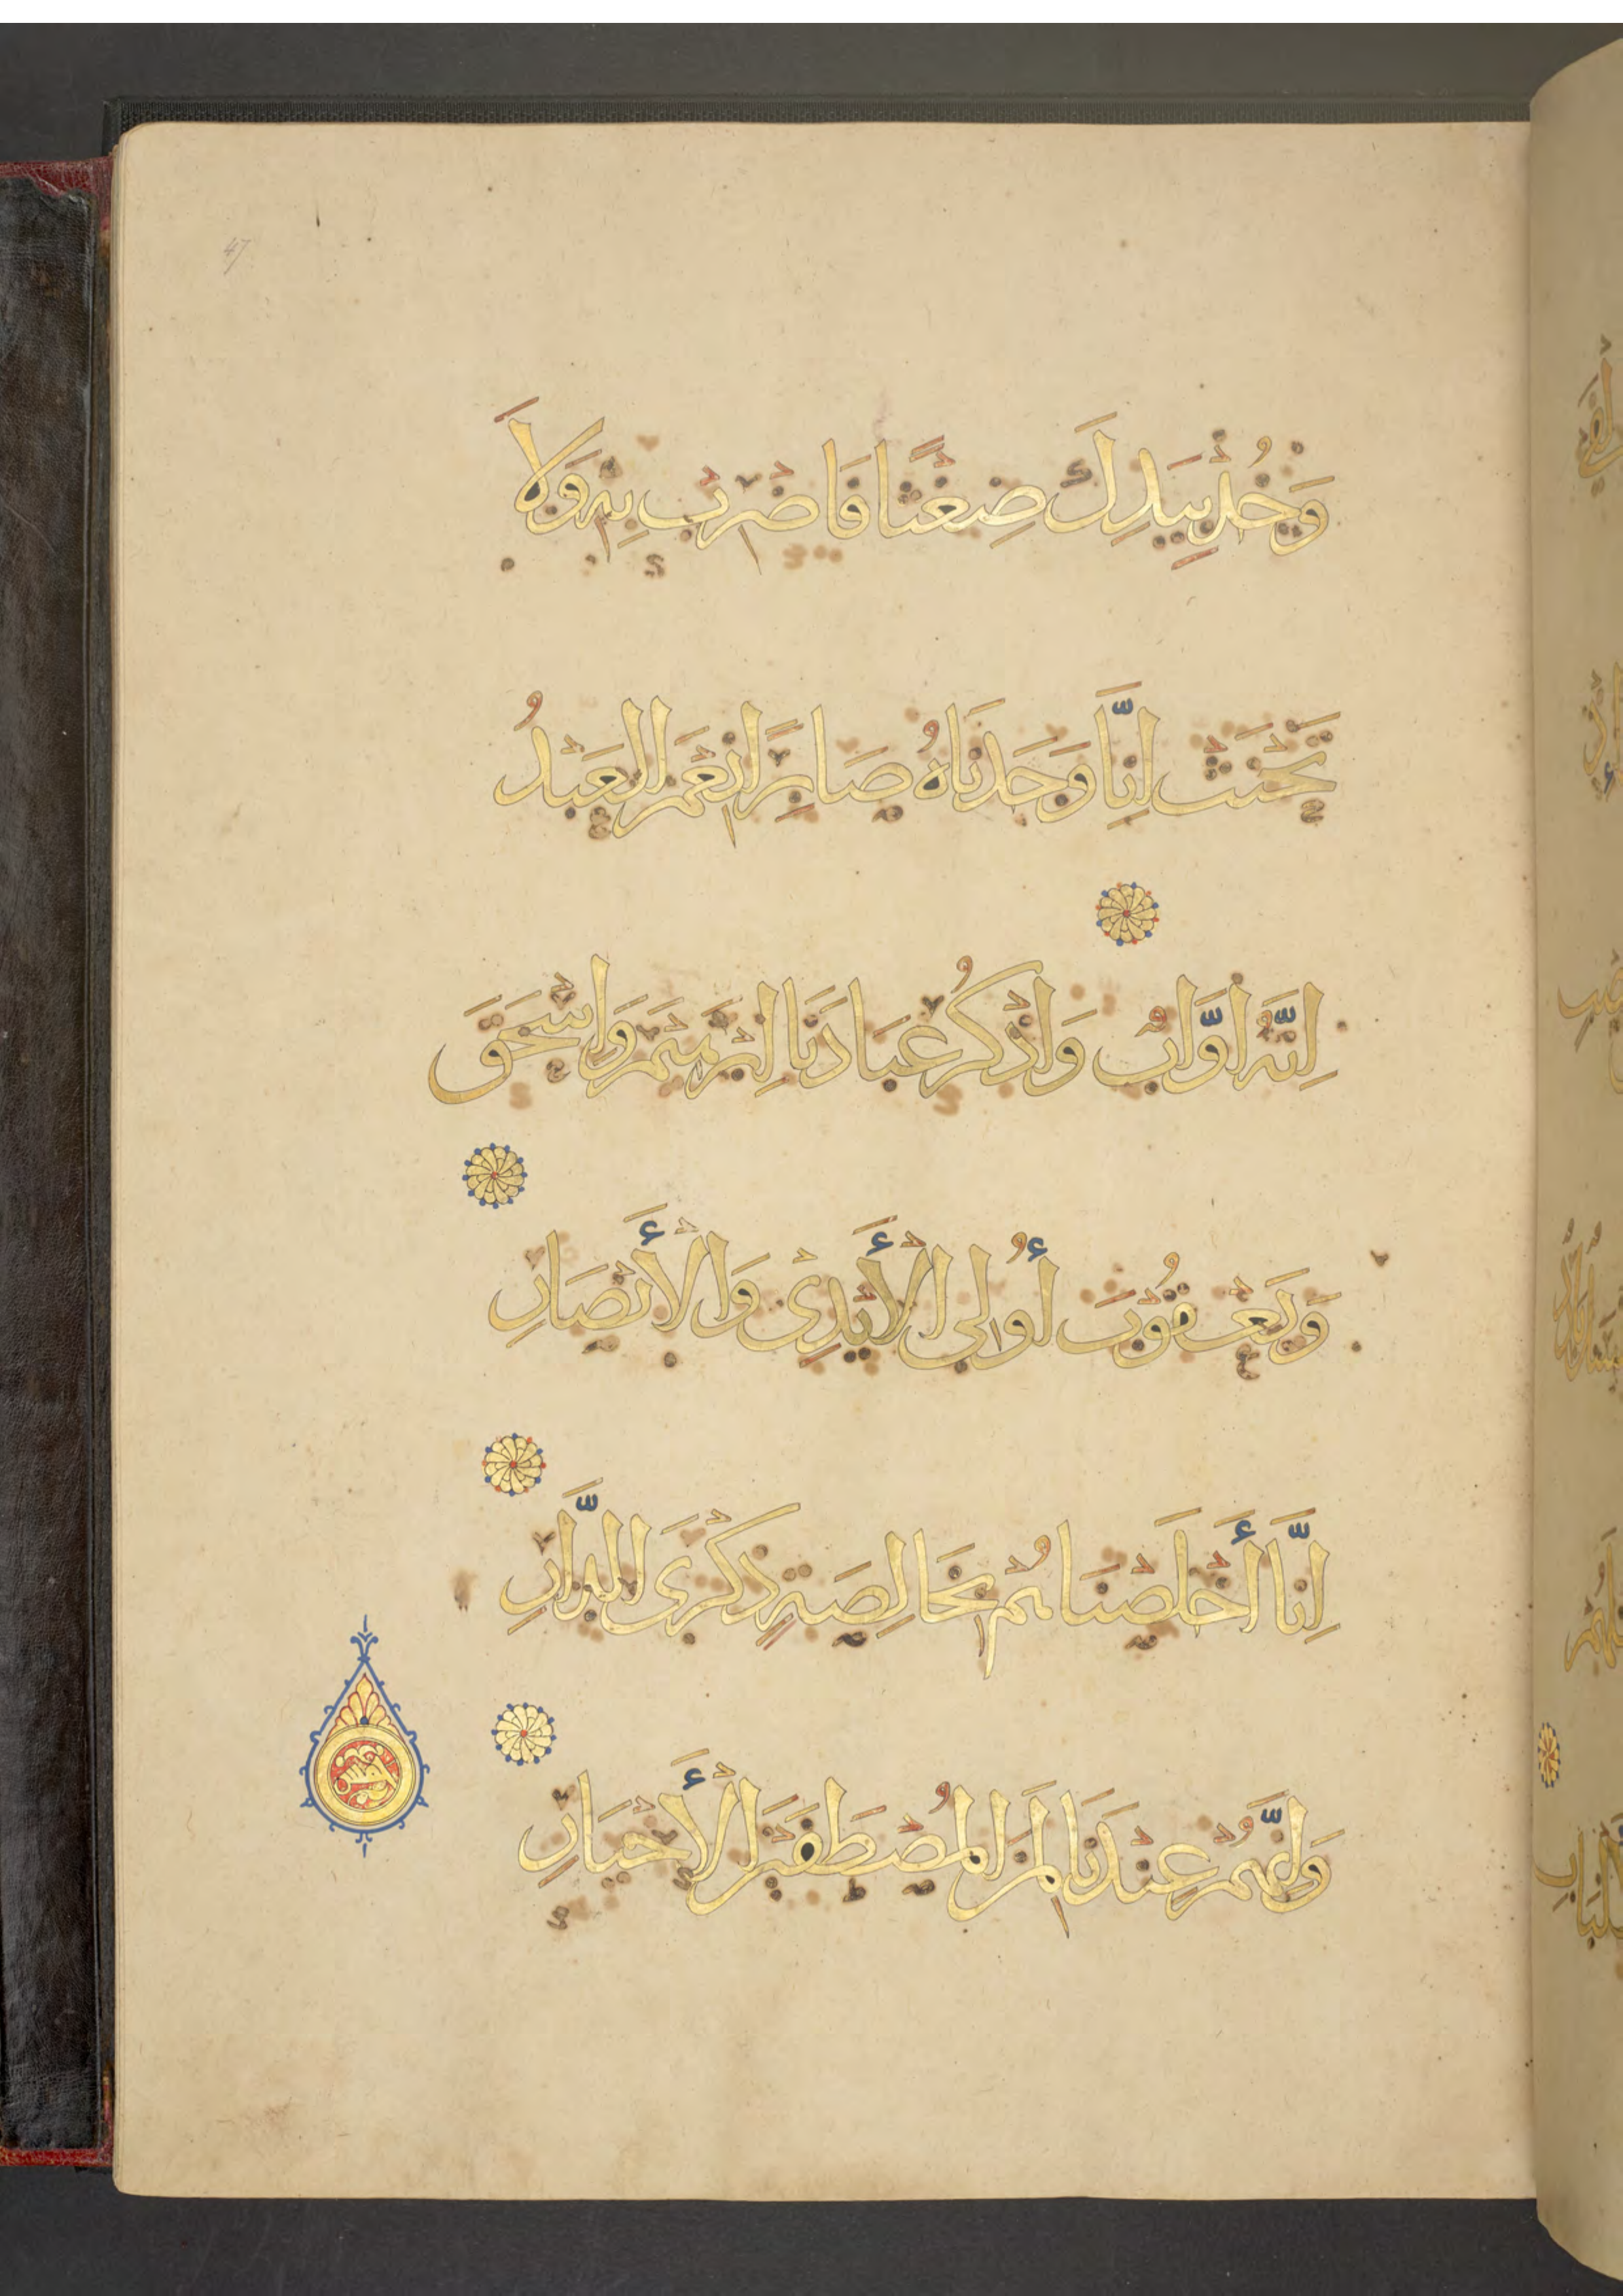 47
وَخُذْ بِيَدِكَ ضِغْثًا فَاضْرِبْ بِهِ وَلَا
تَحْنَثْ اِنَّا وَجَدْنَاهُ صَابِرًا نِعْمَ الْعَبْدُ
اِنَّهُ اَوَّابٌ وَاذْكُرْ عِبَادَنَا اِبْرَهِيمَ وَاِسْحَقَ
وَيَعْقُوبَ أُولِي الْأَيْدِي وَالْأَبْصَارِ
اِنَّا أَخْلَصْنَاهُمْ بِخَالِصَةٍ ذِكْرَى الدَّارِ
وَاِنَّهُمْ عِنْدَنَا لَمِنَ الْمُصْطَفَيْنَ الْأَخْيَارِ